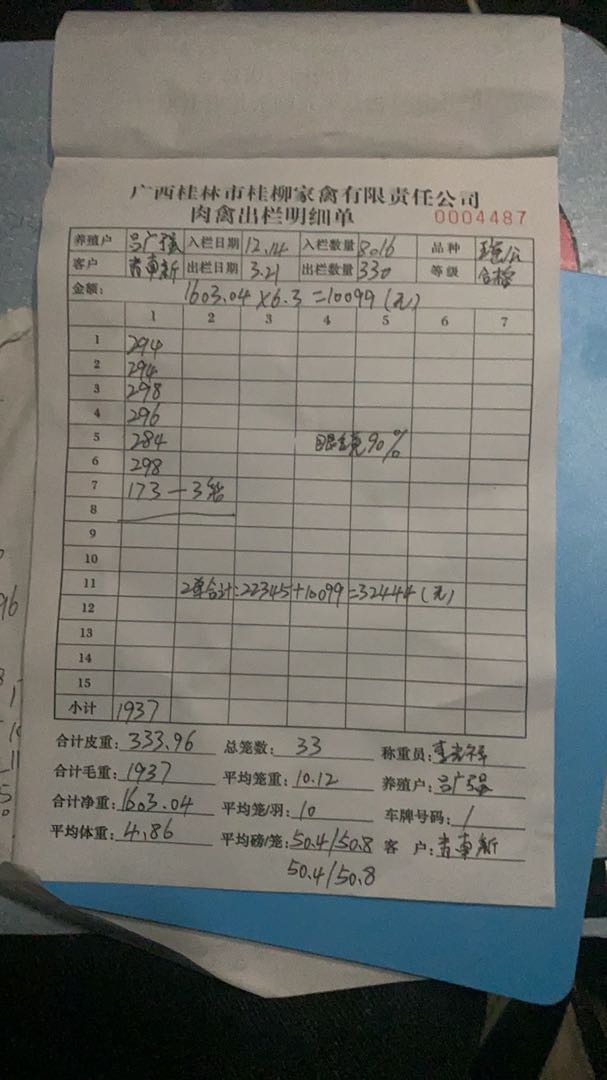 广西桂林市桂柳家禽有限责任公司
肉禽出栏明细单 0004487
养殖户 吕广强 入栏日期 12.14 入栏数量 8016 品种
客户 肖東新 出栏日期 3.21 出栏数量 330 等级 合格
金额: 1603.04×6.3=10099(元)
1 2 3 4 5 6 7
1 294
2 294
3 298
4 296
5 284 眼镜90%
6 298
7 173-3笼
8
9
10
11 2单合计:22345+10099=32444(元)
12
13
14
15
小计 1937
合计皮重: 333.96 总笼数: 33 称重员:
合计毛重: 1937 平均笼重: 10.12 养殖户: 吕广强
合计净重: 1603.04 平均笼/羽: 10 车牌号码: /
平均体重: 4.86 平均磅/笼: 50.4/50.8 客户: 肖東新
50.4/50.8